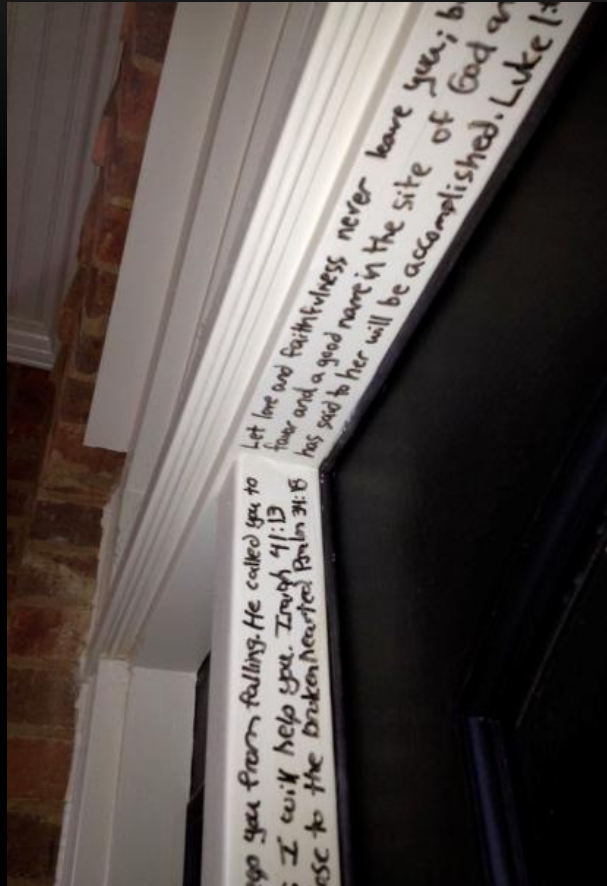 Let love and faithfulness never leave you; b
favor and a good name in the site of God an
has said to her will be accomplished. Luke 1:
you from falling. He called you to
I will help you. Isaiah 41:13
ose to the brokenhearted Psalm 34:18